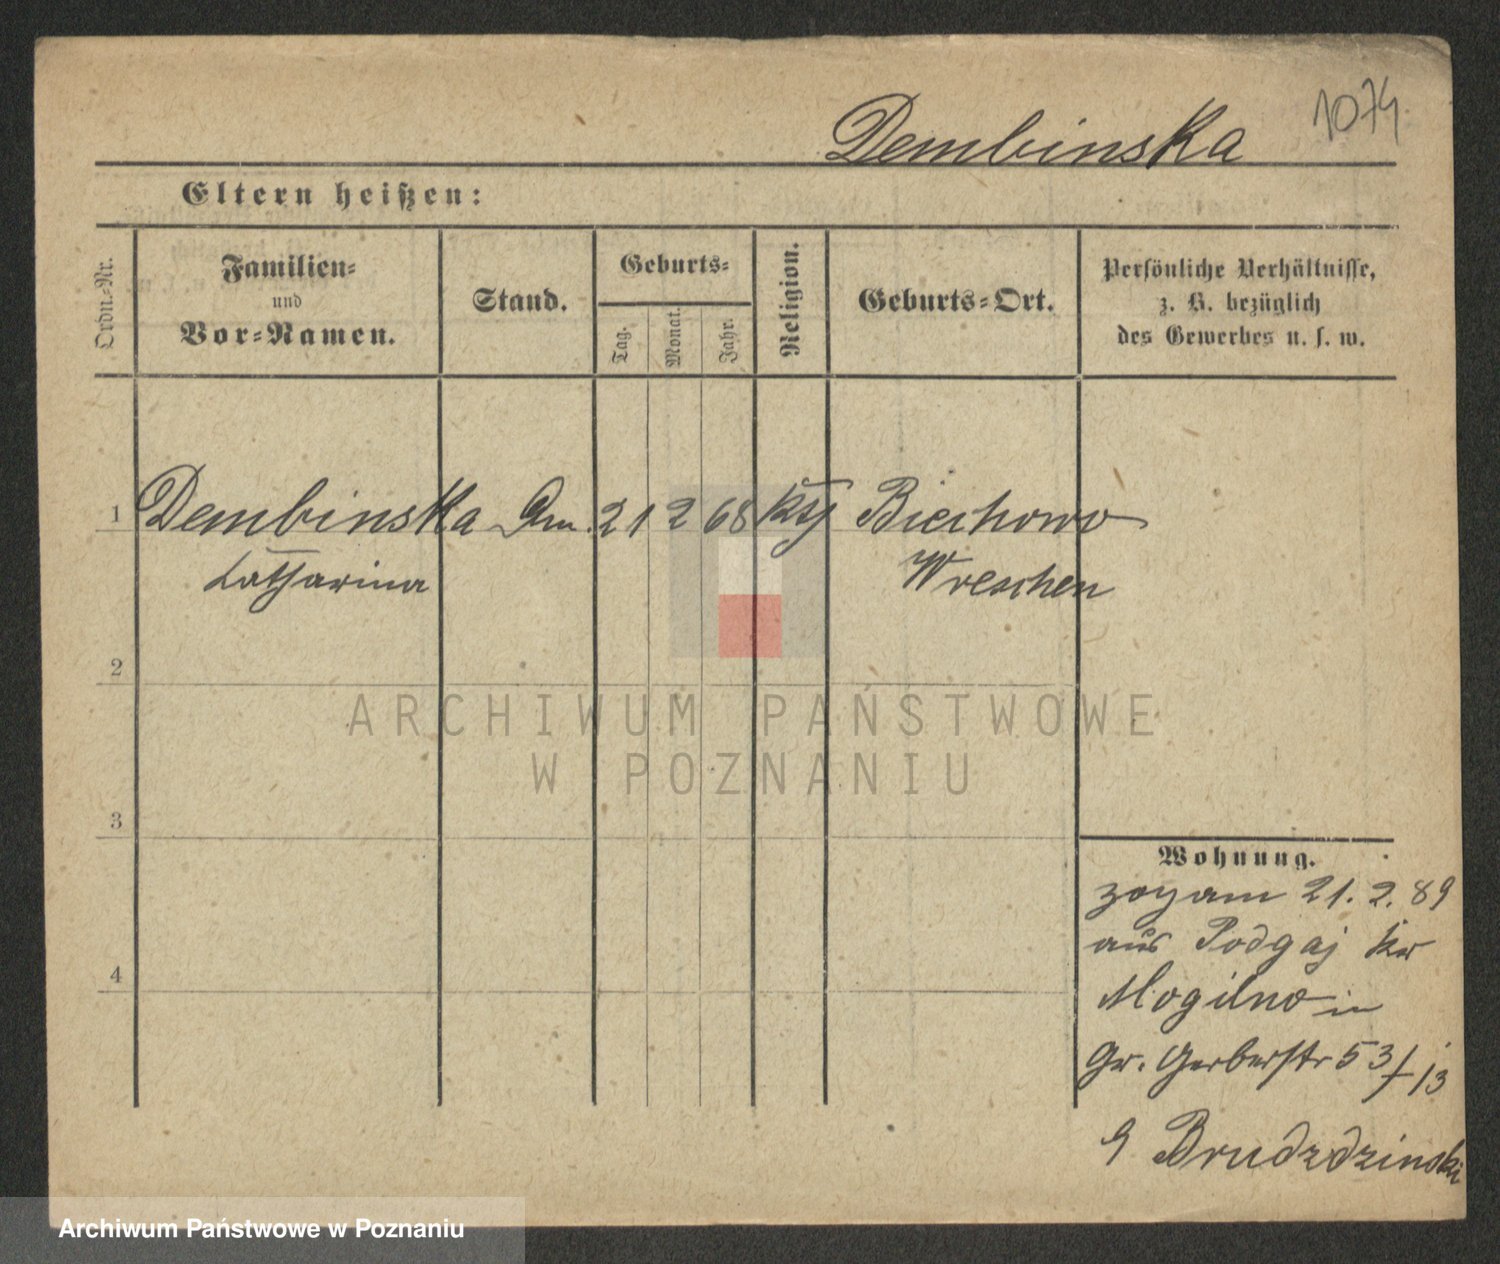 1074
Dembinska
Eltern heißen:
Ordn.-Nr.
Familien-
und
Vor-Namen.
Stand.
Geburts-
Tag.
Monat.
Jahr.
Religion.
Geburts-Ort.
Persönliche Verhältnisse,
z. B. bezüglich
des Gewerbes u. s. w.
1 Dembinska 21 2 68 Biechowo
Catharina Wreschen
2
3
4
Wohnung.
zog am 21. 2. 89
aus Podgaj Kr
Mogilno in
Gr. Gerberstr 53/13
Brudzdzinski
ARCHIWUM PAŃSTWOWE
W POZNANIU
Archiwum Państwowe w Poznaniu